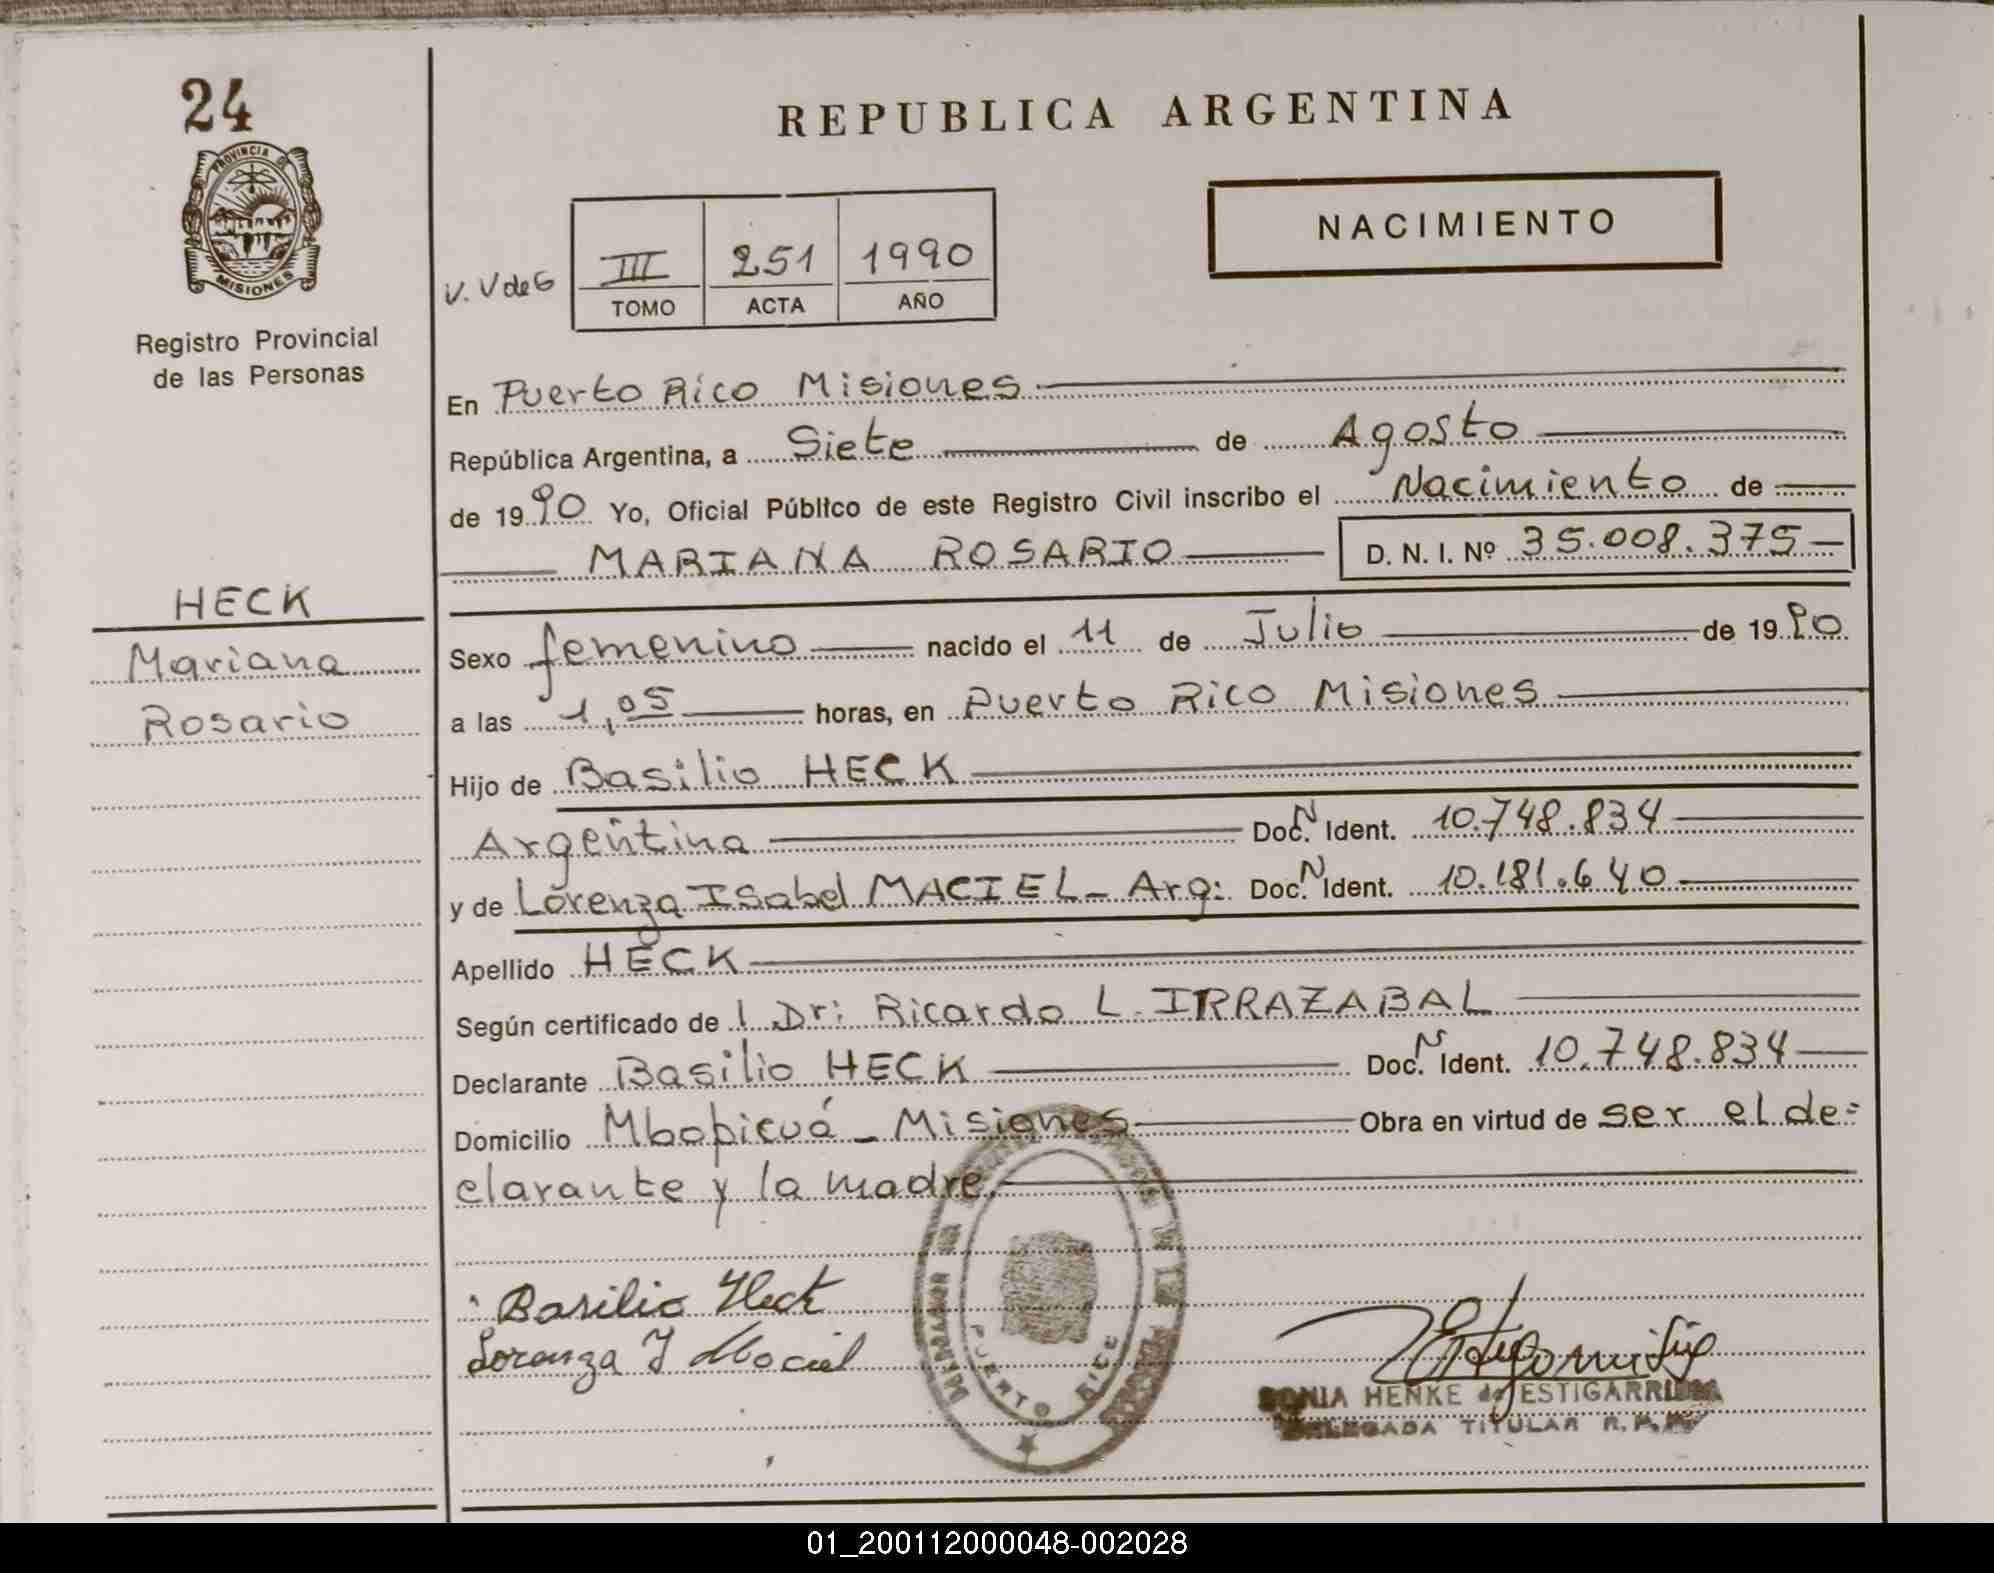 24
PROVINCIA DE
MISIONES
Registro Provincial
de las Personas
HECK
Mariana
Rosario
REPUBLICA ARGENTINA
NACIMIENTO
V. V de G
III 251 1990
TOMO ACTA AÑO
En Puerto Rico Misiones
República Argentina, a Siete de Agosto
de 1990 Yo, Oficial Público de este Registro Civil inscribo el Nacimiento de
MARIANA ROSARIO D. N. I. Nº 35.008.375
Sexo femenino nacido el 11 de Julio de 1990
a las 1,05 horas, en Puerto Rico Misiones
Hijo de Basilio HECK
Argentina Doc. N Ident. 10.748.834
y de Lorenza Isabel MACIEL - Arg: Doc. N Ident. 10.181.640
Apellido HECK
Según certificado de l Dr: Ricardo L. IRRAZABAL
Declarante Basilio HECK Doc. N Ident. 10.748.834
Domicilio Mbopicuá - Misiones Obra en virtud de ser el de=
clarante y la madre.
Basilio Heck
Lorenza I Maciel
PUERTO RICO
SONIA HENKE de ESTIGARRIBIA
DELEGADA TITULAR R. P.
01_200112000048-002028